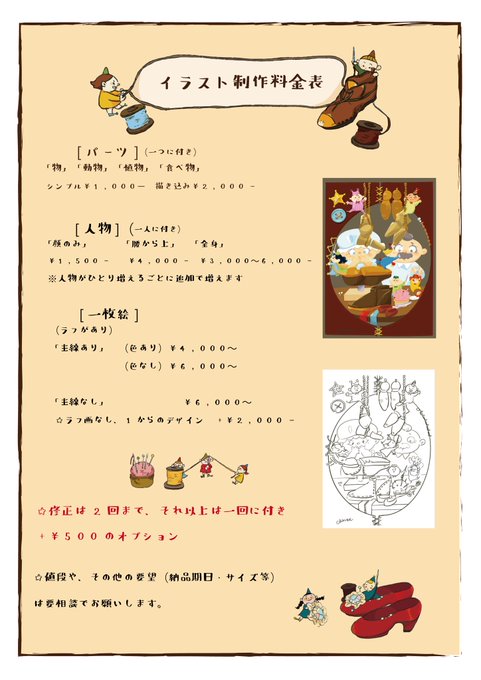 イラスト制作料金表
[パーツ](一つに付き)
「物」「動物」「植物」「食べ物」
シンプル¥1,000− 描き込み¥2,000−
[人物](一人に付き)
「顔のみ」 「腰から上」 「全身」
¥1,500− ¥4,000− ¥3,000〜6,000−
※人物がひとり増えるごとに追加で増えます
[一枚絵]
(ラフがあり)
「主線あり」 (色あり) ¥4,000〜
(色なし) ¥6,000〜
「主線なし」 ¥6,000〜
☆ラフ画なし、1からのデザイン +¥2,000−
☆修正は2回まで、それ以上は一回に付き
+¥500のオプション
☆値段や、その他の要望(納品期日・サイズ等)
は要相談でお願いします。